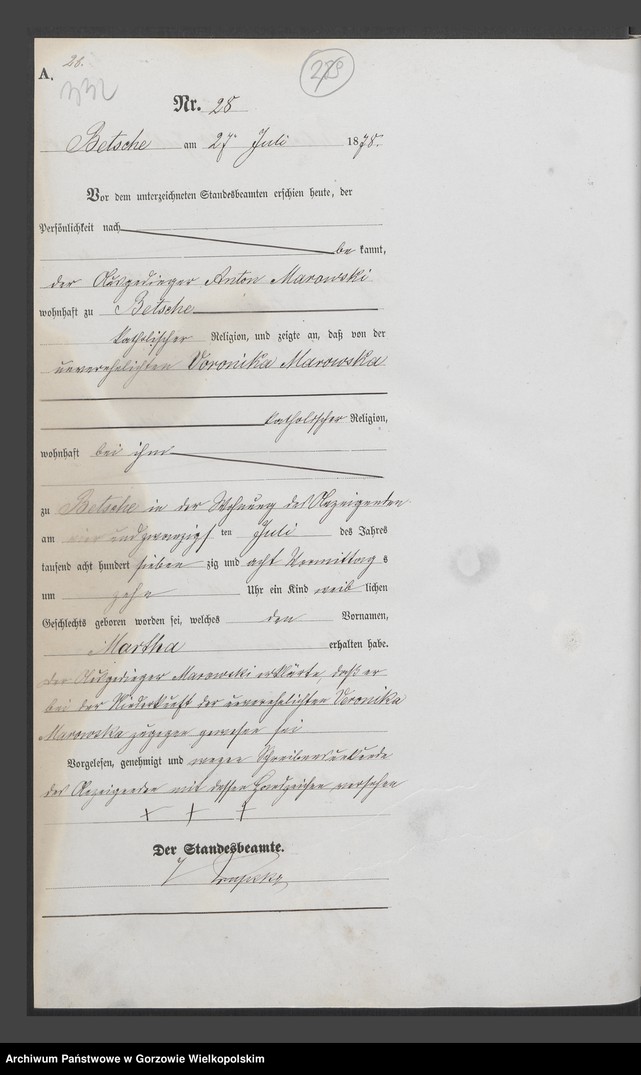 28.
A.
Nr. 28
Betsche am 27ⁿ Juli 1878.
Vor dem unterzeichneten Standesbeamten erschien heute, der
Persönlichkeit nach
be kannt,
der Ausgedinger Anton Marowski
wohnhaft zu Betsche
katholischer Religion, und zeigte an, daß von der
unverehelichten Veronika Marowska
katholischer Religion,
wohnhaft bei ihm
zu Betsche in der Wohnung des Anzeigenden
am vier und zwanzigs ten Juli des Jahres
tausend acht hundert sieben zig und acht Vormittag s
um zehn Uhr ein Kind weib lichen
Geschlechts geboren worden sei, welches den Vornamen,
Martha erhalten habe.
Der Ausgedinger Marowski erklärte daß er
bei der Niederkunft der unverehelichten Veronika
Marowska zugegen gewesen sei
Vorgelesen, genehmigt und wegen Schreibensunkunde
des Anzeigenden mit dessen Handzeichen versehen
+ + +
Der Standesbeamte.
Archiwum Państwowe w Gorzowie Wielkopolskim